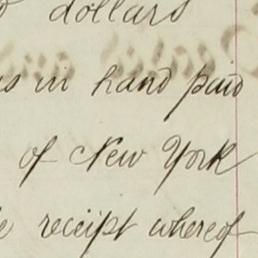 dollars
in hand paid
of New York
receipt whereof